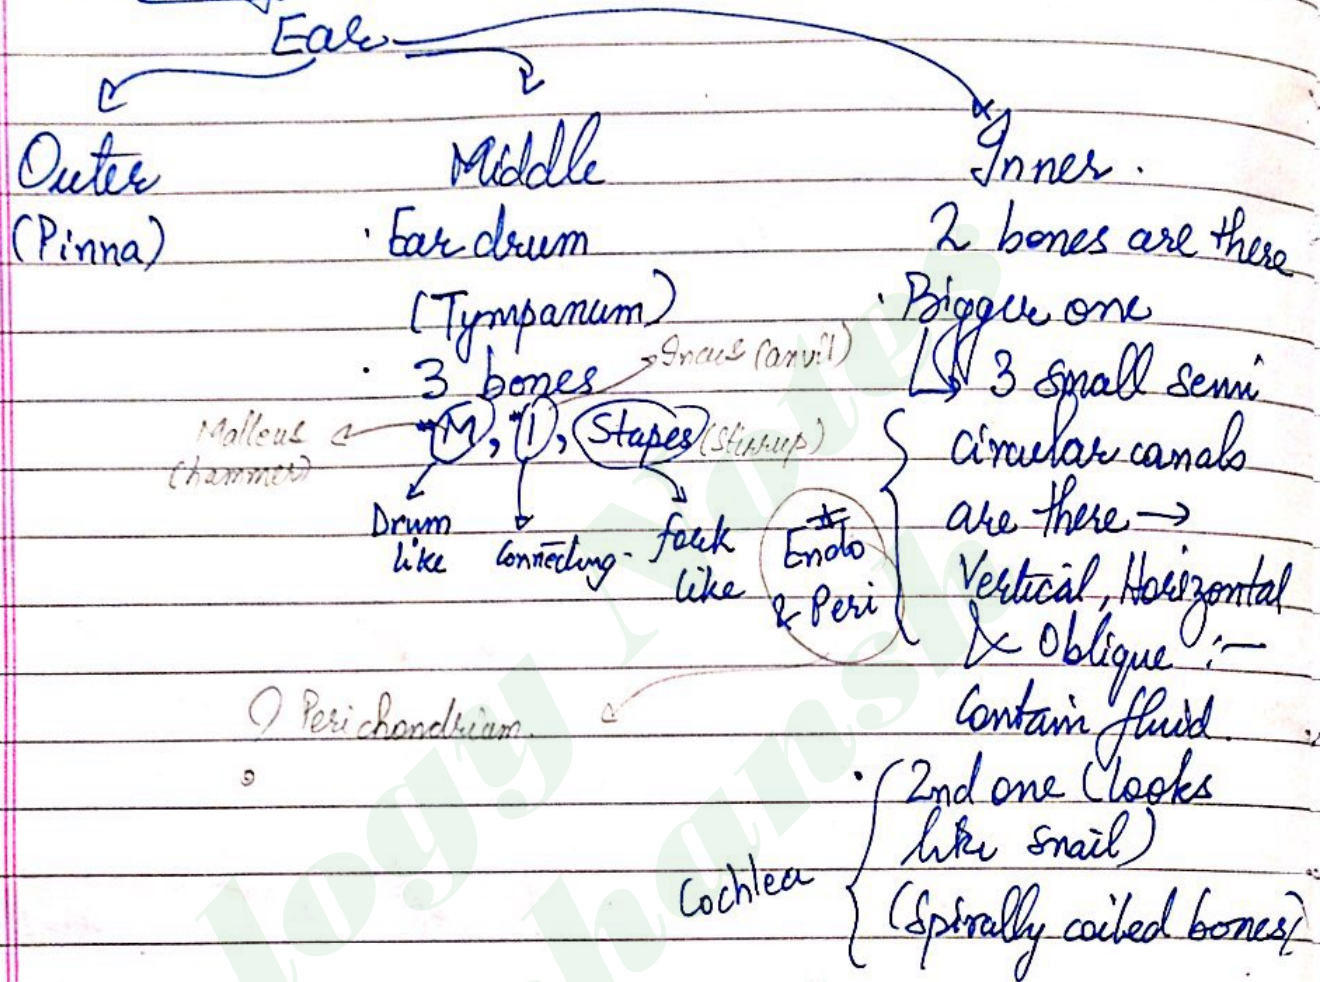 Ear
Outer
(Pinna)
Middle
· Ear drum
(Tympanum)
· 3 bones
Incus (anvil)
Malleus
(hammer)
"M", "I", Stapes (Stirrup)
Drum like
Connecting
fork like
Inner.
2 bones are there
· Bigger one
↳ 3 small semi
circular canals
are there →
Vertical, Horizontal
& Oblique :-
Contain fluid.
Endo
& Peri
Perichondrium.
· 2nd one (looks
like snail)
(Spirally coiled bones)
Cochlea
logy Notes
hansh